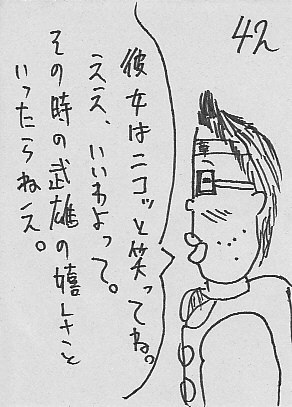 42
彼女はニコッと笑ってね。
ええ、いいわよって。
その時の武雄の嬉しさと
いったらねえ。